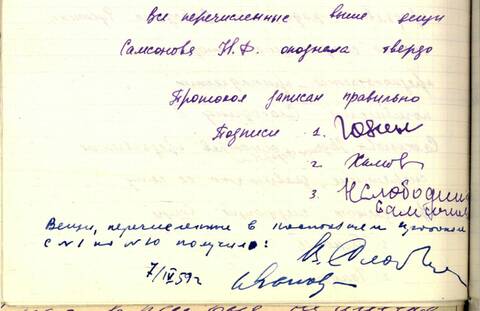 Все перечисленные выше вещи
Самсонова Н.Ф. опознала твердо
Протокол записан правильно
Подписи 1.
2. Хамов
3. Н Слободина
Самсонова
Вещи, перечисленные в настоящем протоколе
с №1 по №10 получил:
7/IV 59 г